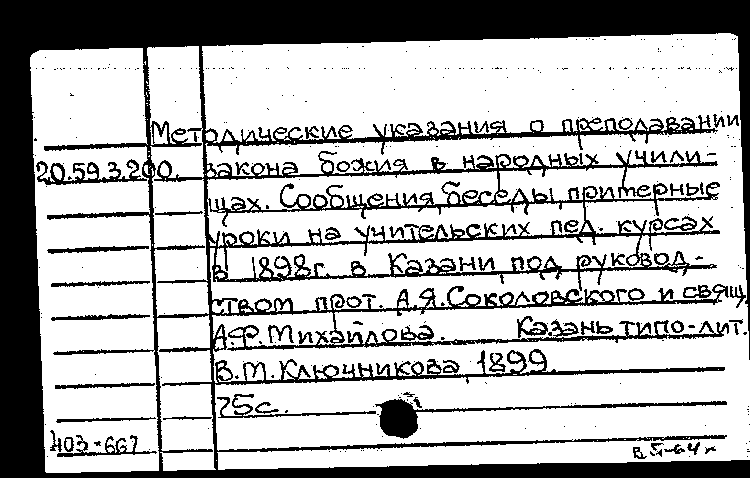 Методические указания о преподавании
20.59.3.200. закона божия в народных учили-
щах. Сообщения, беседы, примерные
уроки на учительских пед. курсах
в 1898г. в Казани, под руковод-
ством прот. А.Я.Соколовского и свящ.
А.Ф.Михайлова. Казань, типо-лит.
В.М.Ключникова, 1899.
75с.
403-667